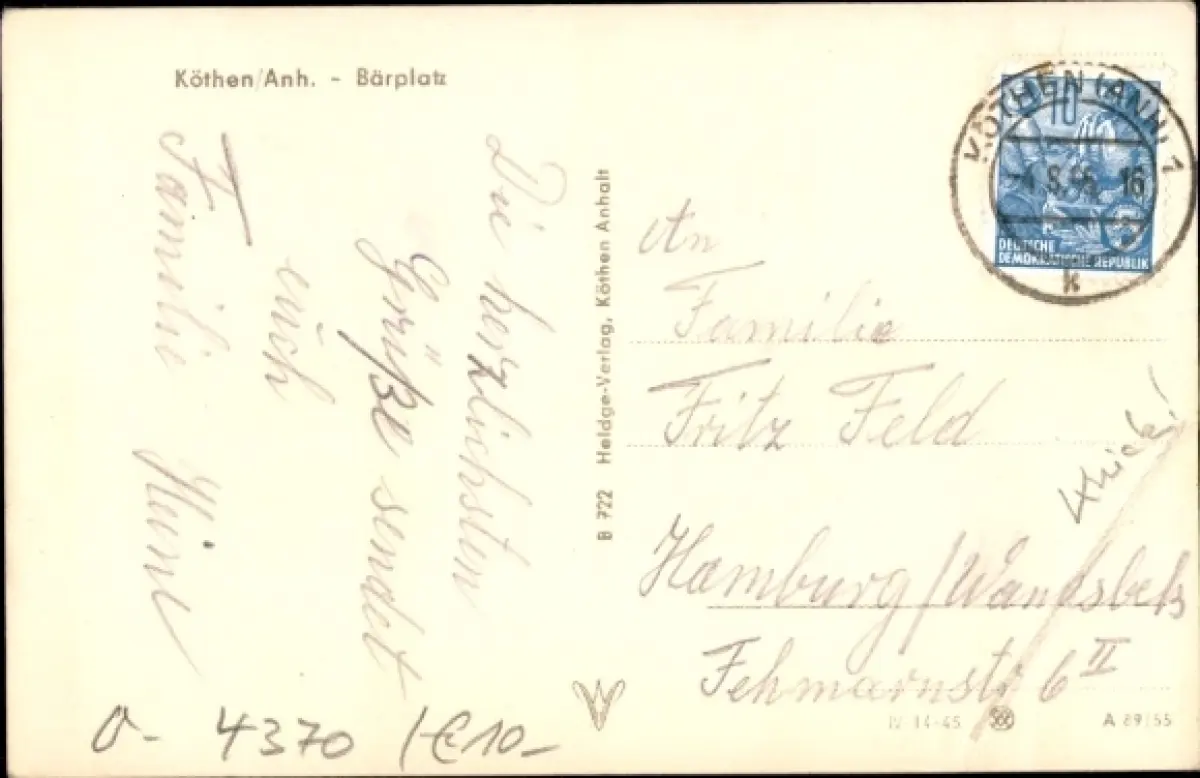 Köthen/Anh. - Bärplatz
Die herzlichsten
Grüße sendet
euch
Familie
B 722 Heldge-Verlag, Köthen Anhalt
KÖTHEN (ANH) 1
16
k
10
5
DEUTSCHE
DEMOKRATISCHE REPUBLIK
An
Familie
Fritz Feld
Hamburg/Wandsbek
Fehmarnstr 6 II
IV-14-45
A 89/55
O- 4370 /-€10-